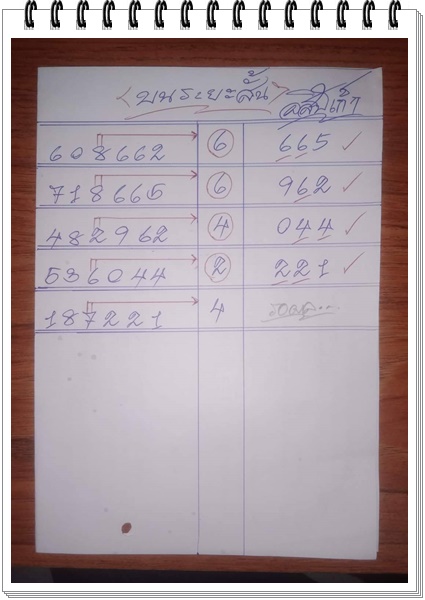 บนระยะสั้น
608662 6 665 ✓
718665 6 962 ✓
482962 4 044 ✓
536044 2 221 ✓
187221 4